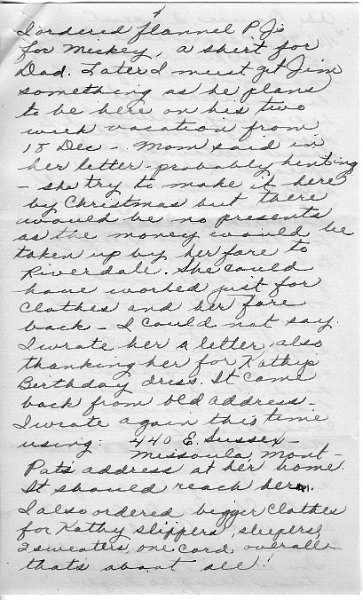 I ordered flannel P.J's
for Mickey, a shirt for
Dad. Later I must get Jim
something as he plans
to be here on his two
week vacation from
18 Dec - Mom said in
her letter - probably hinting
- she try to make it here
by Christmas but there
would be no presents
as the money would be
taken up by her fare to
Riverdale. She could
have worked just for
clothes and her fare
back - I could not say.
I wrote her a letter, also
thanking her for Kathy's
Birthday dress. It came
back from old address -
I wrote again this time
using: 440 E. Sussex -
Missoula, Mont -
Pat's address at her home.
It should reach her.
I also ordered bigger clothes
for Kathy slippers, sleepers,
2 sweaters, one cord overalls
that's about all!